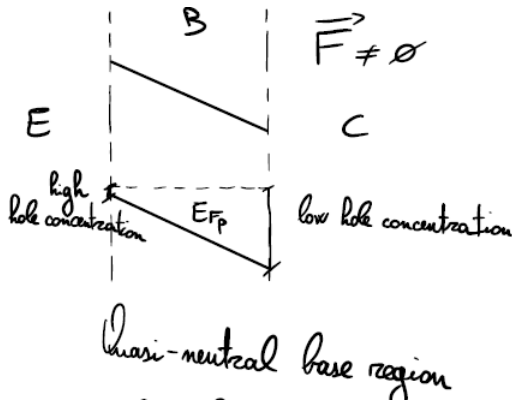 B
F ≠ ∅
E
C
high
hole concentration
E_Fp
low hole concentration
Quasi-neutral base region